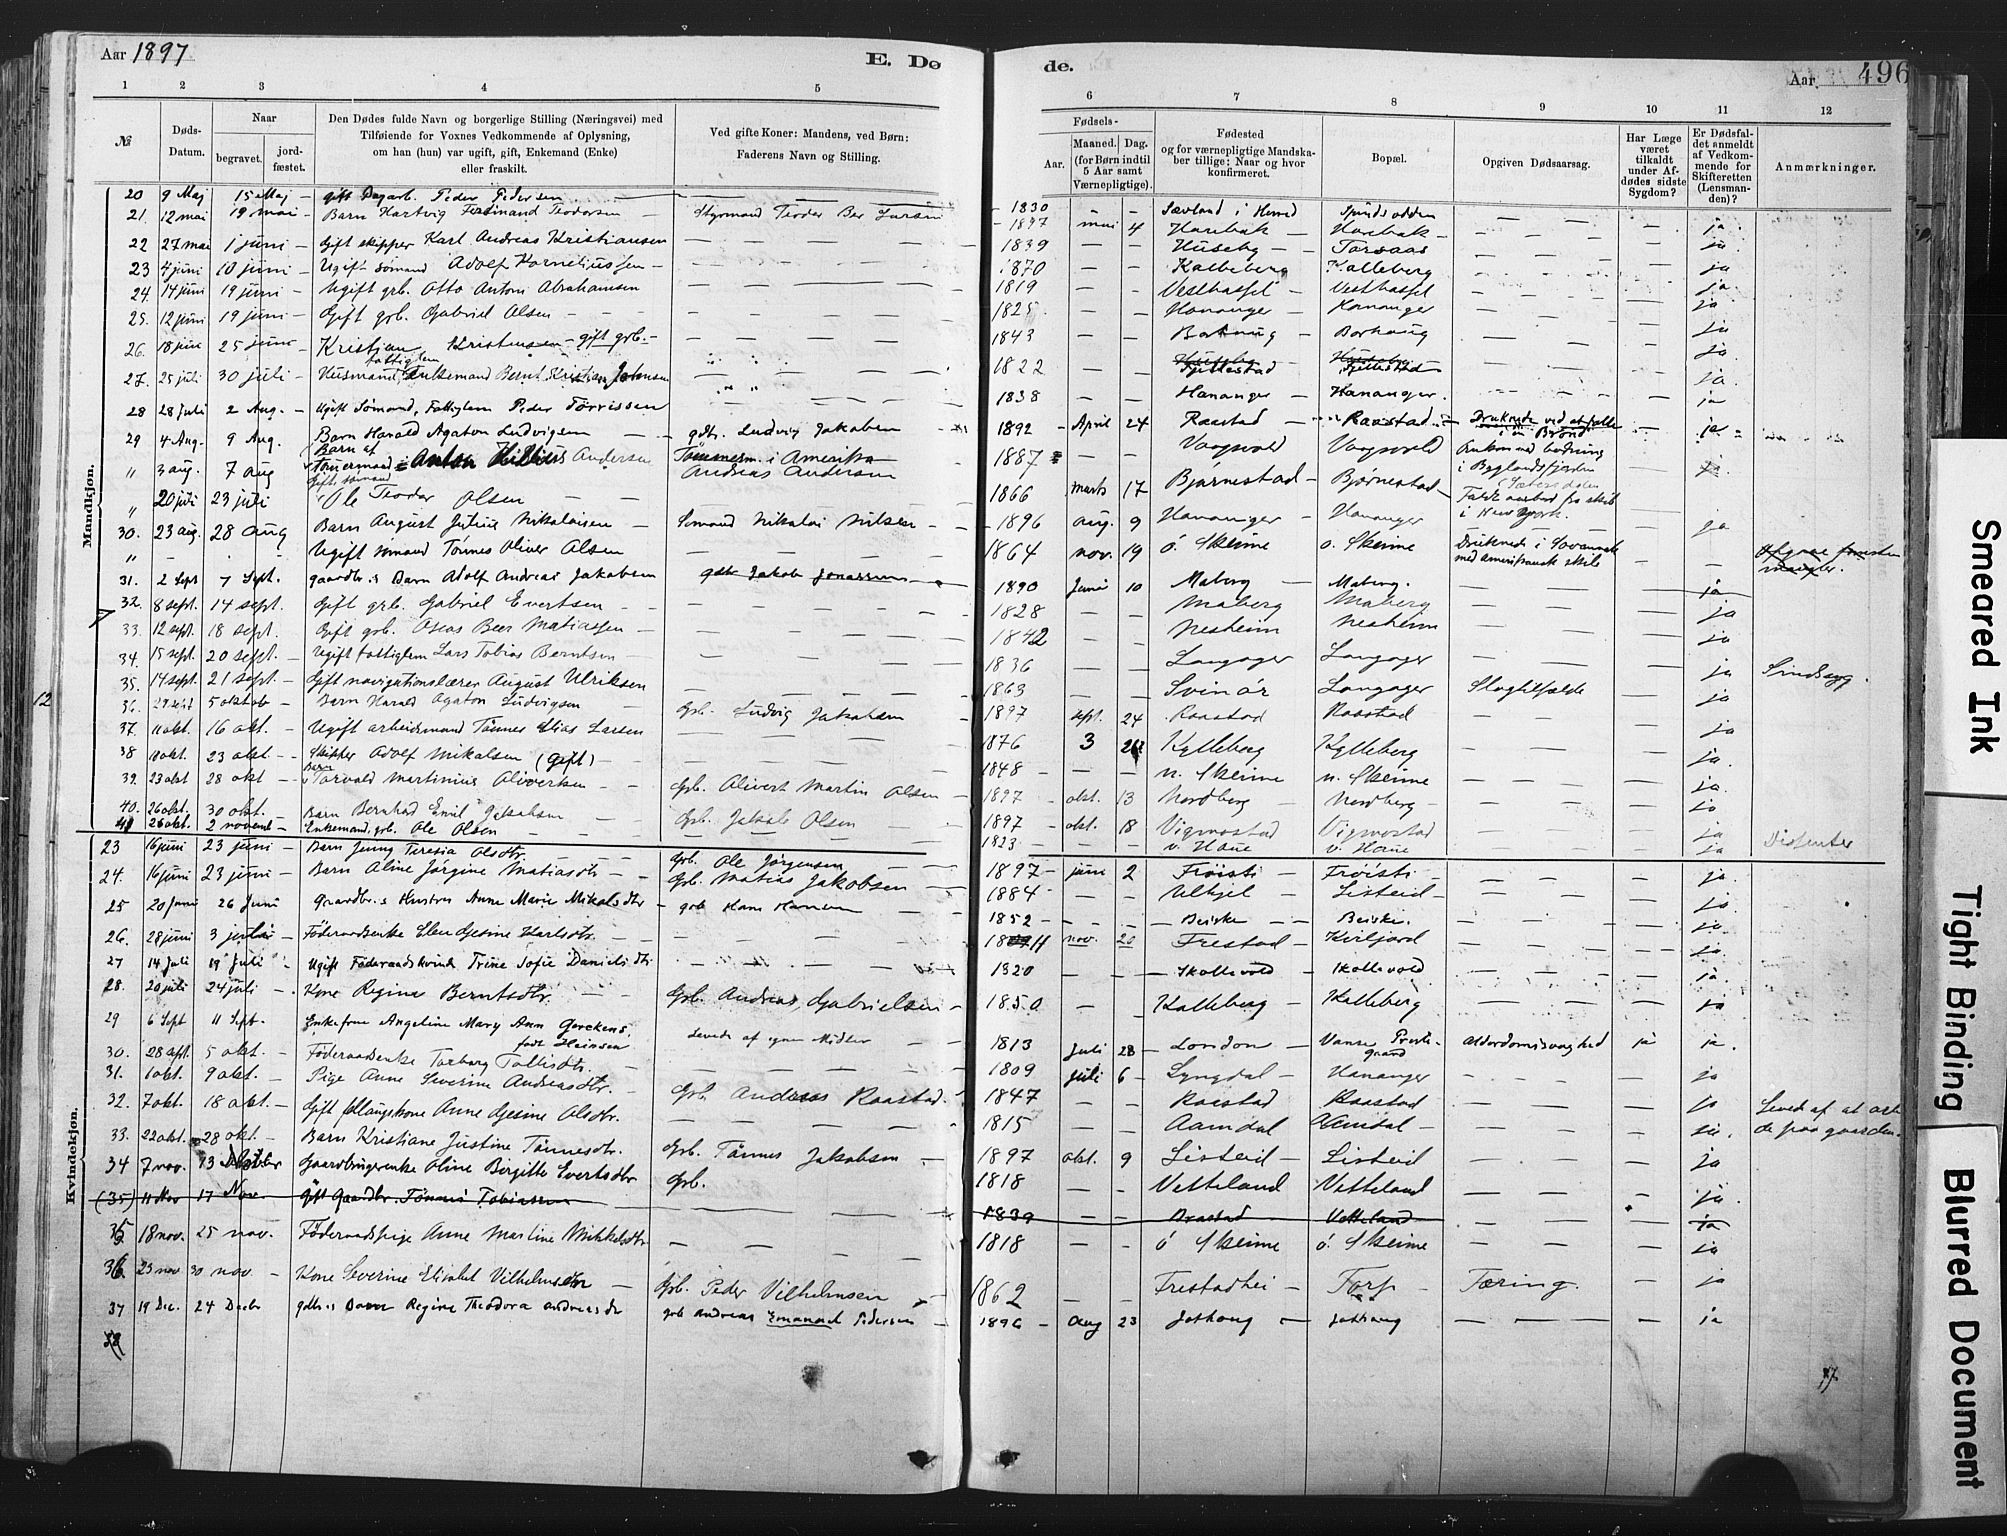 Aar 1897
E. Dø
de.
Aar 496
1 2 3 4 5
6 7 8 9 10 11 12
№
Døds-Datum.
Naar
begravet.
jord-fæstet.
Den Dødes fulde Navn og borgerlige Stilling (Næringsvei) med
Tilføiende for Voxnes Vedkommende af Oplysning,
om han (hun) var ugift, gift, Enkemand (Enke)
eller fraskilt.
Ved gifte Koner: Mandens, ved Børn:
Faderens Navn og Stilling.
Fødsels-
Aar.
Maaned. Dag.
(for Børn indtil
5 Aar samt
Værnepligtige).
Fødested
og for værnepligtige Mandska-
ber tillige: Naar og hvor
konfirmeret.
Bopæl.
Opgiven Dødsaarsag.
Har Læge
været
tilkaldt
under Af-
dødes sidste
Sygdom?
Er Dødsfal-
det anmeldt
af Vedkom-
mende for
Skifteretten
(Lensman-
den)?
Anmærkninger.
Mandkjøn.
20 9 Maj 15 Maj gift Dagarb. Peder Pedersen 1830
21. 12 mai 19 mai Barn Hartvig Ferdinand Teodorsen 1897 mai 4 Havebak Havebak ja
22 27 mai 1 juni Gift skipper Karl Andreas Kristiansen 1839 Huseby Torsaas ja
23 4 juni 10 juni Ugift sømand Adolf Korneliussen 1870 Kalleberg Kalleberg ja
24. 14 juni 19 juni Ugift grb. Otto Anton Abrahamsen 1819 Vesthassel Vesthassel ja
25. 12 juni 19 juni Gift grb. Gabriel Olsen 1825 Hananger Hananger ja
26. 18 juni 25 juni Kristian Kristensen gift grb. 1843 Borhaug ja
27. 25 juli 30 juli Husmand, Enkemand Bernt Kristian 1822 ja
28 28 juli 2 Aug. Ugift Sømand, Fattiglem Peder Tørrissen 1838 Hananger Hananger. ja
29 4 Aug. 9 Aug. Barn Harald Agaton Ludvigsen gdbr. Ludvig Jakobsen 1892 April 24 Raastad Raastad Druknede ved at falde i en Brønd ja
" 3 aug. 7 aug Barn af Tømmermand Andersen Tømmerm. i Amerika Andreas Andersen 1887 Vaagsvold Vaagsvold i Byglandsfjorden
" 20 juli 23 juli Gift sømand Ole Teodor Olsen 1866 marts 17 Bjørnestad Bjørnestad i New York.
30. 23 aug. 28 aug Barn August Julius Nikolaisen Sømand Nikolai Nilsen 1896 aug. 9 Hananger Hananger ja
" Ugift sømand Tönnes Oliver Olsen 1864 nov. 19 ö. Skeime ö. Skeime Druknede i med amerikansk skib
31. 2 Sept 7 Sept. gaardbr.s Barn Adolf Andreas Jakobsen gdbr Jakob Jonassen 1890 Juni 10 Maberg Maberg. ja
32. 8 sept. 14 sept. Gift grb. Gabriel Evertsen 1828 Maberg Maberg ja
33. 12 sept. 18 sept. Gift grb. Matiassen 1842 Nesheim Nesheim ja
34. 15 sept. 20 sept. Ugift fattiglem Lars Tobias Berntsen 1836 Langager Langager ja Sindsyg.
35. 14 sept. 21 sept. Gift navigationslærer August Ulriksen 1863 Svinör Langager Slagtilfælde ja
36. 29 sept 5 oktob Barn Harald Agaton Ludvigsen Grb. Ludvig Jakobsen 1897 sept. 24 Raastad Raastad
37. 11 okt. 16 okt. Ugift arbeidsmand Tönnes Elias Larsen 1876 3 Kylleberg Kylleberg ja
38 okt. 23 okt. Skipper Adolf Mikalsen (gift) 1848 n. Skeime n. Skeime ja.
39. 23 okt 28 okt Barn Torvald Martinius Olivertsen Grb. Olivert Martin Olsen 1897 okt. 13 Nordberg Nordberg ja.
40. 26 okt. 30 okt. Barn Bernhard Emil Jakobsen Grb. Jakob Olsen 1897 okt. 18 Vigmostad Vigmostad ja
41 26 okt. 2 novemb Enkemand, grb. Ole Olsen 1823 v. Haue v. Haue ja Dissenter
Kvindekjøn.
23 16 juni 23 juni Barn Jenny Teresia Olsdtr. Grb. Ole Jörgensen 1897 juni 2 Fröisti Fröisti ja
24. 16 juni 23 juni Barn Aline Jörgine Matiasdtr Grb. Matias Jakobsen 1884 Ulhjel Listeid ja
25 20 Juni 26 Juni Gaardbr.s Hustru Anne Marie Mikalsdtr grb Hans Hansen 1852 Beiske Beiske. ja.
26. 28 juni 3 juli Föderaadsenke Elen Gjesine Karlsdtr. nov. 20 Frestad Kviljord ja
27 14 Juli 19 Juli Ugift Föderaadskvinde Trine Sofie Danielsdtr 1820 Skollevold Skollevold ja
28. 20 juli 24 juli Kone Regine Berntsdtr. Grb. Andreas Gabrielsen 1850 Kalleberg Kalleberg ja
29 6 Sept 11 Sept. Enkefrue Angeline Mary Ann Gerckens født Heinsen Levede af egne Midler 1813 Juli 28 London Vanse Prestegaard Alderdomssvaghed ja ja.
30. 28 sept. 5 okt. Föderaadsenke Torborg Tollisdtr. 1809 juli 6 Lyngdal Hananger ja
31. 1 okt. 9 okt. Pige Anne Severine Andreasdtr. Grb. Andreas Raastad. 1847 Raastad Raastad ja Levede af at arbeide paa gaarden.
32. 7 okt. 18 okt. Gift Anne Gjesine Olsdtr. 1815 Aamdal Aamdal ja.
33. 22 okt. 28 okt. Barn Kristiane Justine Tönnesdtr. Grb. Tönnes Jakobsen 1897 okt. 9 Listeid Listeid ja
34 7 nov. 13 Gaardbrugerenke Oline Bergitte Evertsdtr Grb. 1818 Vetteland Vetteland ja.
(35) 11 Nov 17 Nov. Gift Gaardbr. Tönnes Tobiassen 1839 Brastad Vetteland ja
35 18 nov. 25 nov. Föderaadspige Anne Martine Mikkelsdtr 1818 ö Skeime ö. Skeime ja
36. 23 nov 30 nov. Kone Severine Elisabet Vilhelmsdtr Grb. Peder Vilhelmsen 1862 Frestadhei Torp Tæring. ja
37 19 Dec. 24 Decbr gdbr.s Barn Regine Theodora Andreasdtr grb Andreas Emanuel Pedersen 1896 Aug 23 Jøthoug Jøthoug ja
38
12
Smeared Ink
Tight Binding
Blurred Document